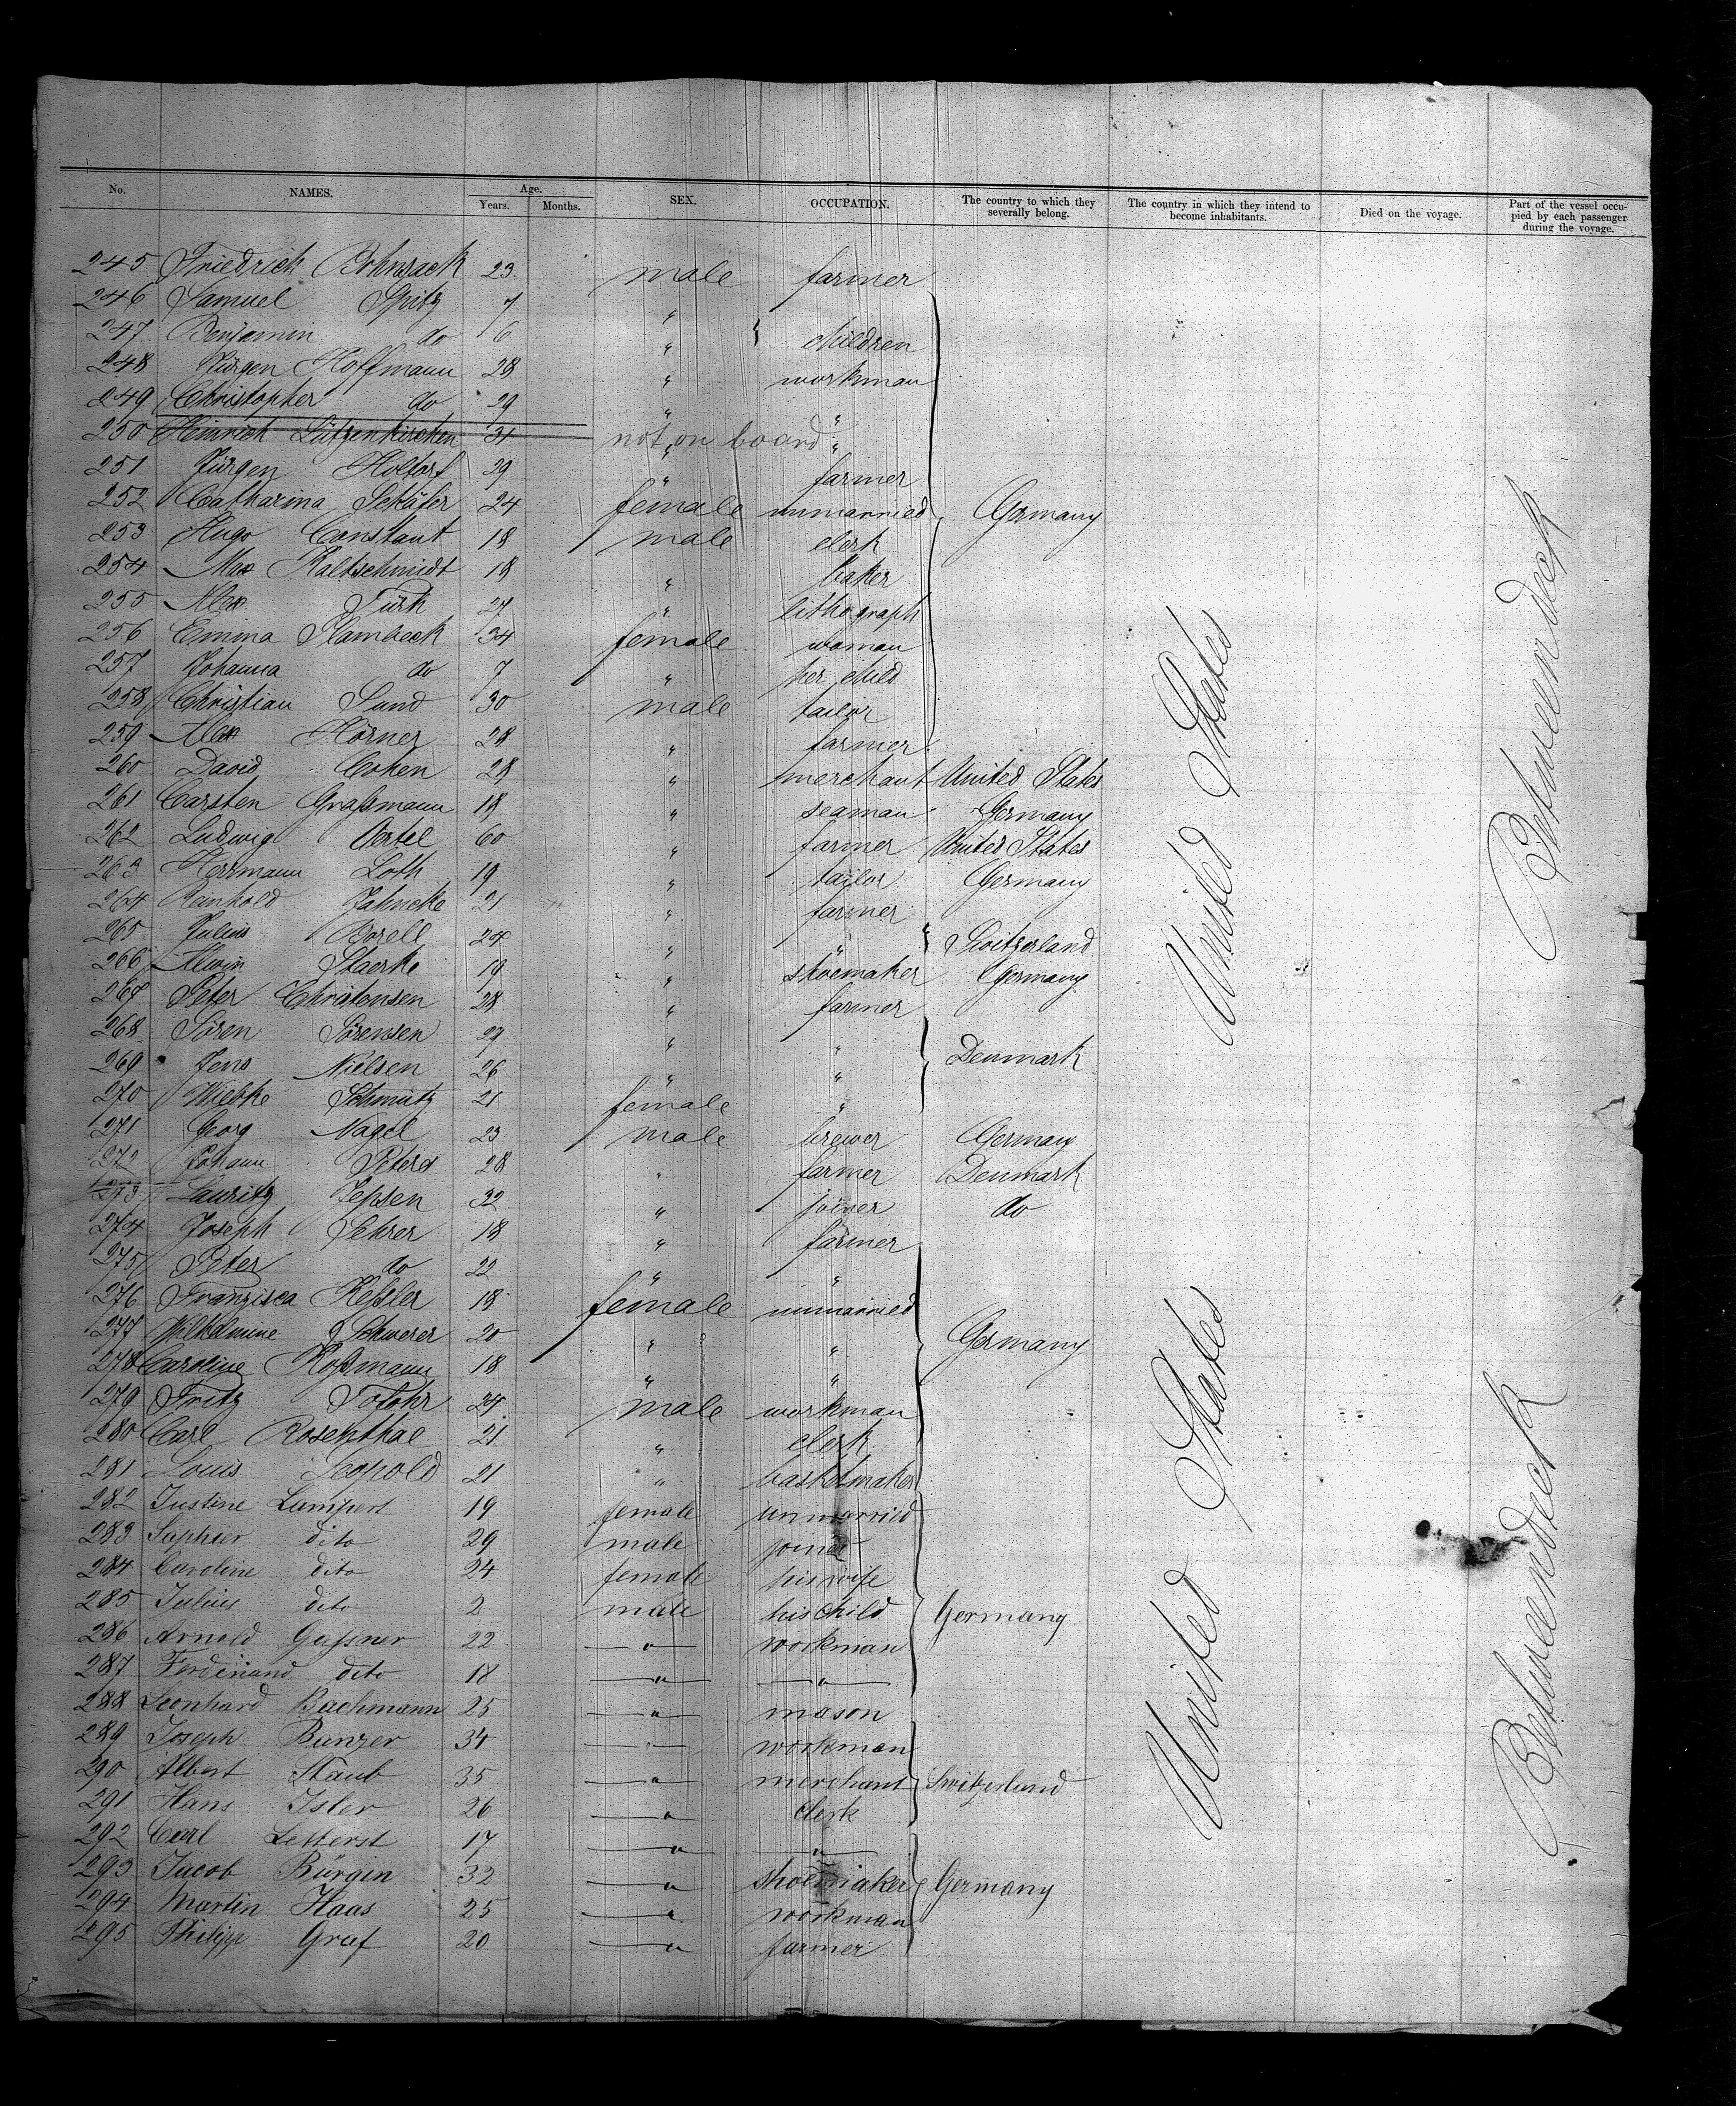 No. NAMES. Age. Years. Months. SEX. OCCUPATION. The country to which they severally belong. The country in which they intend to become inhabitants. Died on the voyage. Part of the vessel occupied by each passenger during the voyage.
245 Friedrich Bohnsack 23 male farmer
246 Samuel Spitz 7 "
247 Benjamin do 6 " children
248 Jürgen Hoffmann 28 " workman
249 Christopher do 29 " "
250 Heinrich Lützenkirchen 31 not on board " "
251 Jürgen Holtorf 29 " farmer
252 Catharina Schäfer 24 female unmarried Germany
253 Hugo Constant 18 male clerk
254 Max Kaltschmidt 18 " baker
255 Alex Türk 27 " lithograph
256 Emma Plambeck 34 female woman
257 Johanna do 7 " her child
258 Christian Sund 30 male tailor
259 Alex Hörner 28 " farmer
260 David Cohen 28 " merchant United States
261 Carsten Graßmann 18 " seaman Germany
262 Ludwig Oertel 60 " farmer United States
263 Herrmann Loth 19 " tailor Germany
264 Reinhold Jahncke 21 " farmer
265 Julius Borell 24 " " Switzerland
266 Alwin Staerke 19 " shoemaker Germany
267 Peter Christensen 28 " farmer
268 Sören Sörensen 29 " "
269 Jens Nielsen 26 " " Denmark
270 Wiebke Schmütz 21 female "
271 Georg Nagel 23 male brewer Germany
272 Johann Peters 28 " farmer Denmark
273 Lauritz Jepsen 32 " joiner do
274 Joseph Fehrer 18 " farmer
275 Peter do 22 " "
276 Franzisca Keßler 18 female unmarried
277 Wilhelmine Schwerer 20 " " Germany
278 Caroline Roßmann 18 " "
279 Fritz Totohr 24 male workman
280 Carl Rosenthal 21 " clerk
281 Louis Leopold 21 " basketmaker
282 Justine Lampert 19 female unmarried
283 dito 29 male joiner
284 Caroline dito 24 female his wife
285 Julius dito 2 male his child Germany
286 Arnold Gaßner 22 " workman
287 Ferdinand dito 18 " "
288 Leonhard Bachmann 25 " mason
289 Joseph Bunzer 34 " workman
290 Albert Staub 35 " merchant Switzerland
291 Hans Isler 26 " clerk
292 Carl Letterst 17 " "
293 Jacob Bürgin 32 " shoemaker Germany
294 Martin Haas 25 " workman
295 Philipp Graf 20 " farmer
United States
United States
Betweendeck
Betweendeck